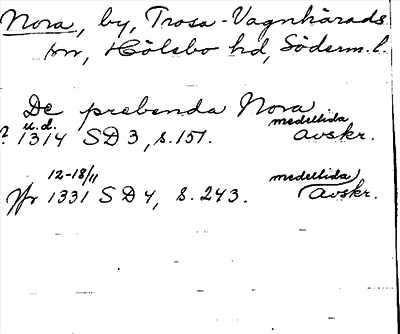 Nora, by, Trosa-Vagnhärads
sn, Hölebo hd, Söderm. l.
De prebenda Nora
? u.d. 1314 SD 3, s. 151. medeltida avskr.
12-18/11
Jfr 1331 SD 4, s. 243. medeltida avskr.